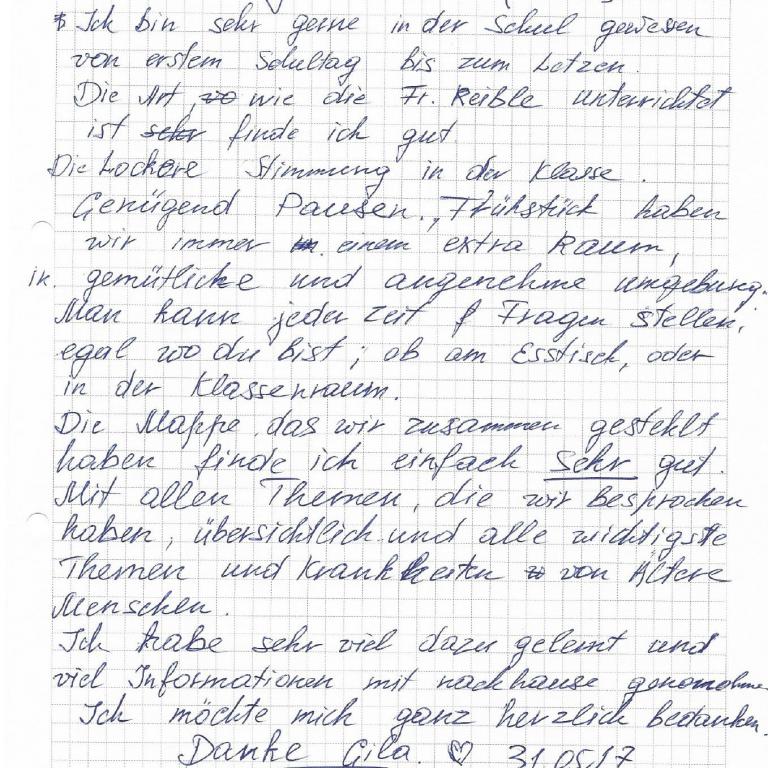 * Ich bin sehr gerne in der Schul gewessen
von erstem Schultag bis zum Letzen.
Die Art, wie die Fr. Reible unterrichtet
ist sehr finde ich gut.
Die Lockere Stimmung in der Klasse.
Genügend Pausen., Frühstück haben
wir immer in. einem extra Raum,
in. gemütliche und angenehme umgebung.
Man kann jeder Zeit f Fragen stellen,
egal wo du bist; ob am Esstisch, oder
in der Klassenraum.
Die Mappe das wir zusammen gestehlt
haben finde ich einfach sehr gut.
Mit allen Themen, die wir besprochen
haben, übersichtlich und alle wichtigste
Themen und Krankheiten von Ältere
Menschen.
Ich habe sehr viel dazu gelernt und
viel Informationen mit nachhause genomohme
Ich möchte mich ganz herzlich bedanken.
Danke Gila. ♡ 31.05.17